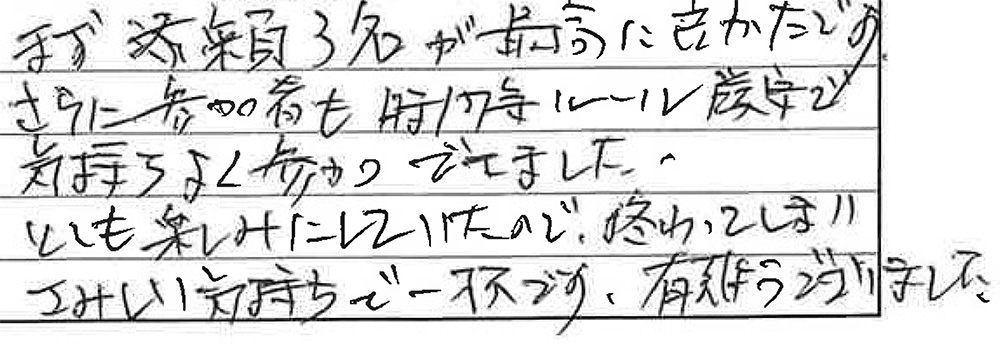 まず 添乗員3名が最高に良かたです
さらに参加者も時間等ルール厳守で
気持ちよく参加できました。
とても楽しみにしていたので、終わってしまい
さみしい気持ちで一杯です、有難うございました。